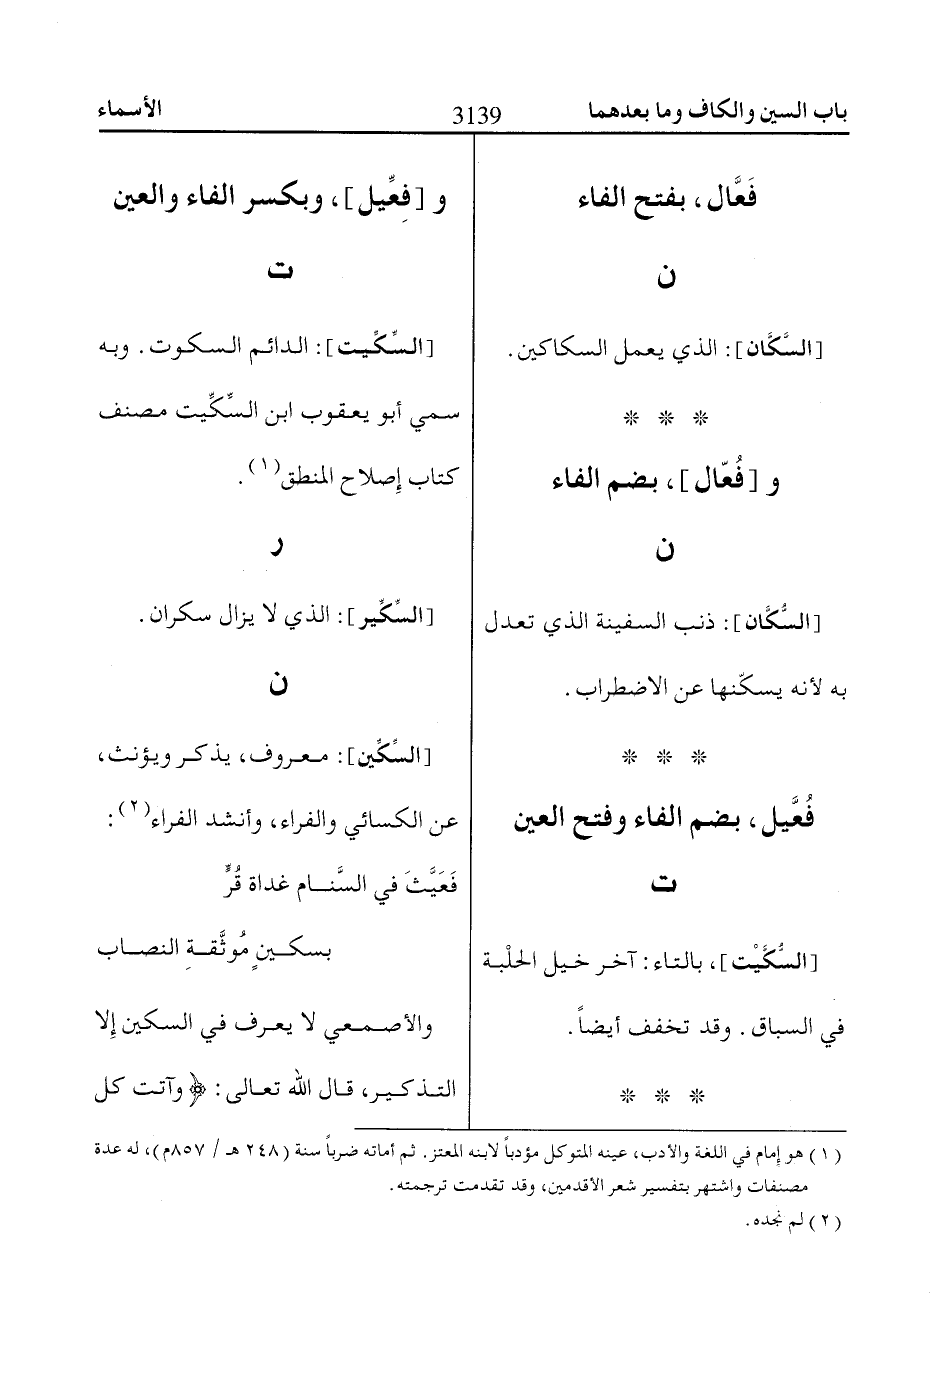 باب السين والكاف وما بعدهما
3139
الأسماء
فَعَّال، بفتح الفاء
ن
[السَّكَّان]: الذي يعمل السكاكين.
* * *
و [فُعّال]، بضم الفاء
ن
[السُّكَّان]: ذنب السفينة الذي تعدل
به لأنه يسكّنها عن الاضطراب.
* * *
فُعَّيل، بضم الفاء وفتح العين
ت
[السُّكَّيْت]، بالتاء: آخر خيل الحلْبة
في السباق. وقد تخفف أيضاً.
* * *
و [فِعِّيل]، وبكسر الفاء والعين
ت
[السِّكِّيت]: الدائم السكوت. وبه
سمي أبو يعقوب ابن السِّكِّيت مصنف
كتاب إصلاح المنطق(١).
ر
[السِّكِّير]: الذي لا يزال سكران.
ن
[السِّكِّين]: معروف، يذكر ويؤنث،
عن الكسائي والفراء، وأنشد الفراء(٢):
فَعَيَّثَ في السَّنام غداة قُرٍّ
بسكينٍ مُوثَّقةِ النصاب
والأصمعي لا يعرف في السكين إلا
التذكير، قال الله تعالى: ﴿وآتت كل
(١) هو إمام في اللغة والأدب، عينه المتوكل مؤدباً لابنه المعتز. ثم أماته ضرباً سنة (٢٤٨ هـ / ٨٥٧م)، له عدة
مصنفات واشتهر بتفسير شعر الأقدمين، وقد تقدمت ترجمته.
(٢) لم نجده.